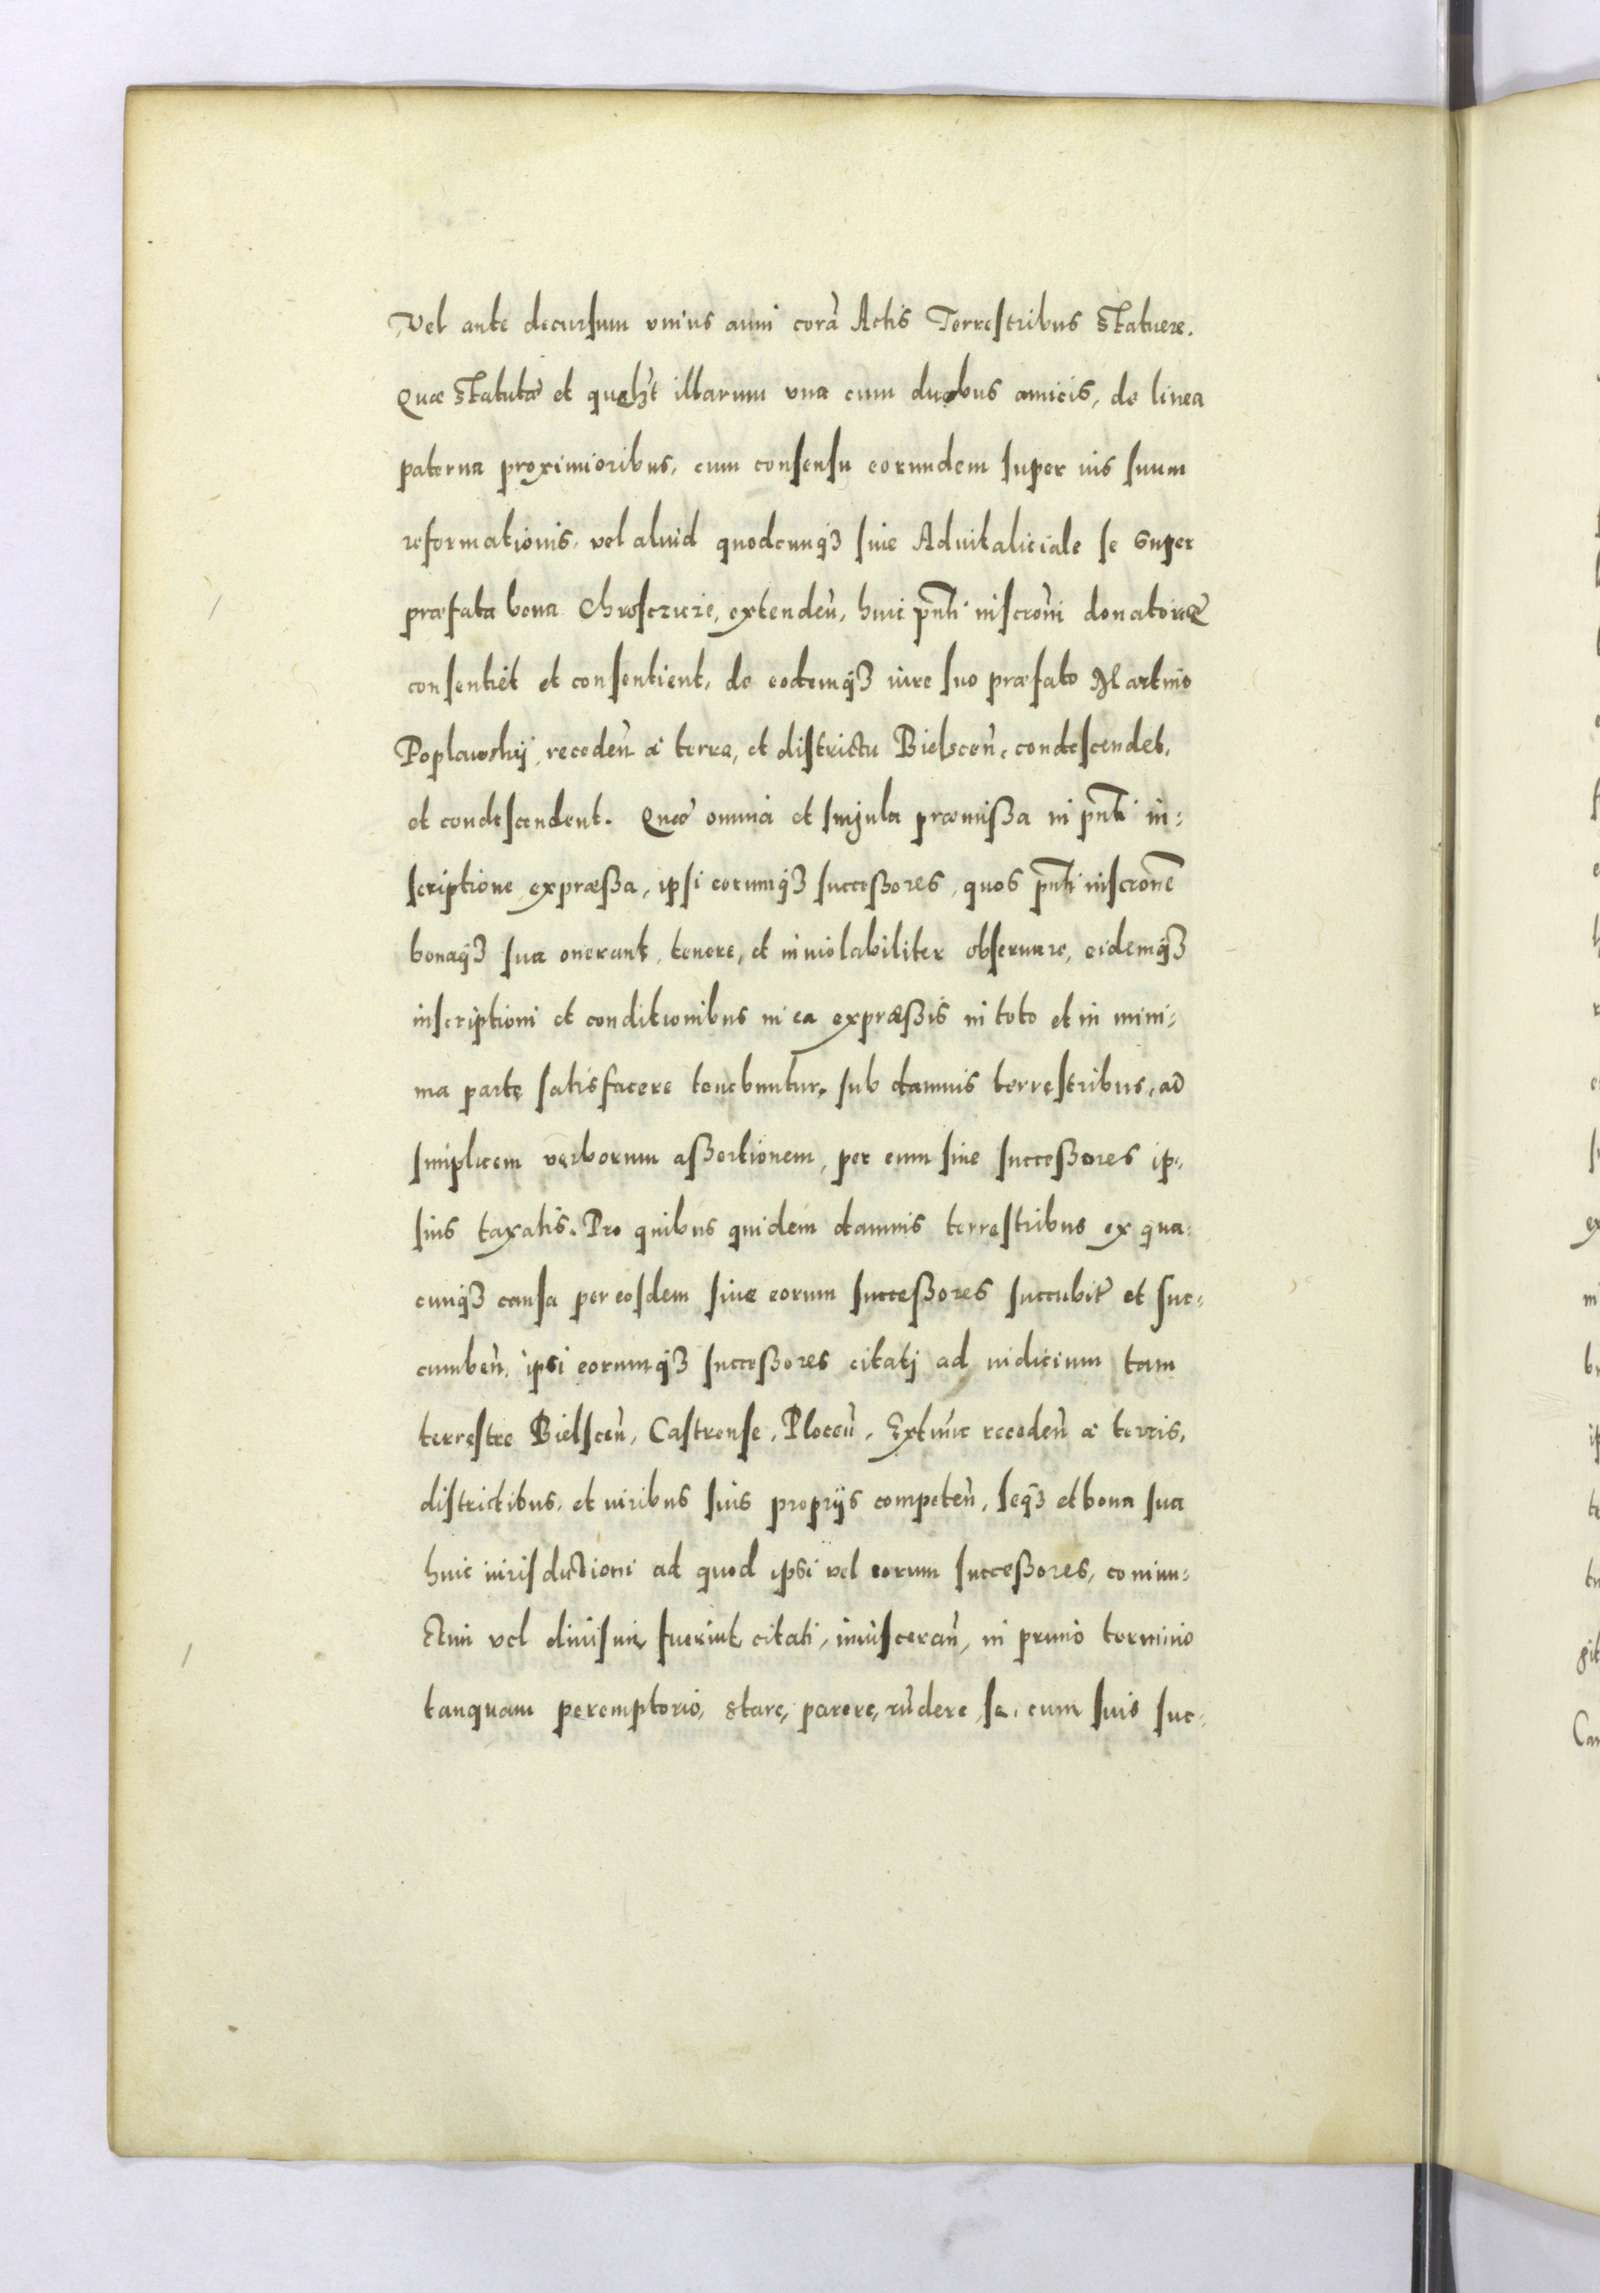 Vel ante decursum vnius anni corã Actis Terrestribus statuere.
Quæ statutæ et quęlꝫt illarum vna cum duobus amicis, de linea
paterna proximioribus, cum consensu eorundem super ius suum
reformationis, vel aliud quodcunqꝫ siue Aduitaliciale se super
præfata bona Chrosczicze, extendeñ, huic pñti inscrõni donatoriæ
consentiet et consentient, de eodemqꝫ iure suo præfato Martino
Poplawskij, recedeñ à terra, et districtu Bielsceñ, condescendet,
et condescendent. Quæ omnia et singula præmissa in pñti in:
scriptione expræssa, ipsi eorumqꝫ successores, quos pñti inscrõnē
bonaqꝫ sua onerant, tenere, et inuiolabiliter obseruare, eidemqꝫ
inscriptioni et conditionibus in ea expræssis in toto et in mini:
ma parte satisfacere tenebuntur, sub damnis terrestribus, ad
simplicem verborum assertionem, per eum siue successores ip:
sius taxatis. Pro quibus quidem damnis terrestribus ex qua:
cunqꝫ causa per eosdem siue eorum successores succubit̃ et suc:
cumbeñ, ipsi eorumqꝫ successores citatj ad iudicium tam
terrestre Bielsceñ, Castrense, Ploceñ, Extunc recedeñ à terris,
districtibus, et iuribus suis proprijs competeñ, seqꝫ et bona sua
huic iurisdictioni ad quod ipsi vel eorum successores, coniun:
ctim vel diuisim fuerint citati, inuisceran̄, in primo termino
tanquam peremptorio, stare, parere, rñdere, se, cum suis suc: